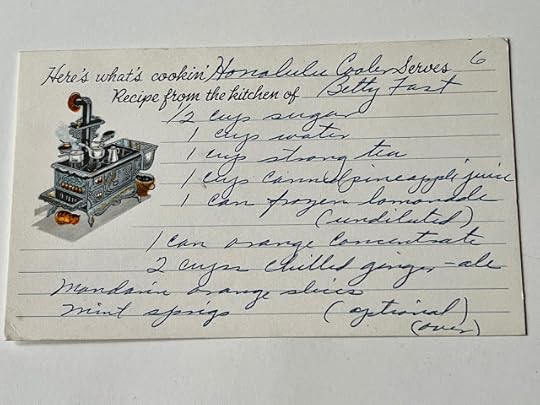 Here's what's cookin' Honalulu Cooler Serves 6
Recipe from the kitchen of Betty Fast
1/2 cup sugar
1 cup water
1 cup strong tea
1 cup canned pineapple juice
1 can frozen lomonade
(undiluted)
1 can orange concentrate
2 cups chilled ginger-ale
Mandarin orange slices
mint sprigs (optional)
(over)